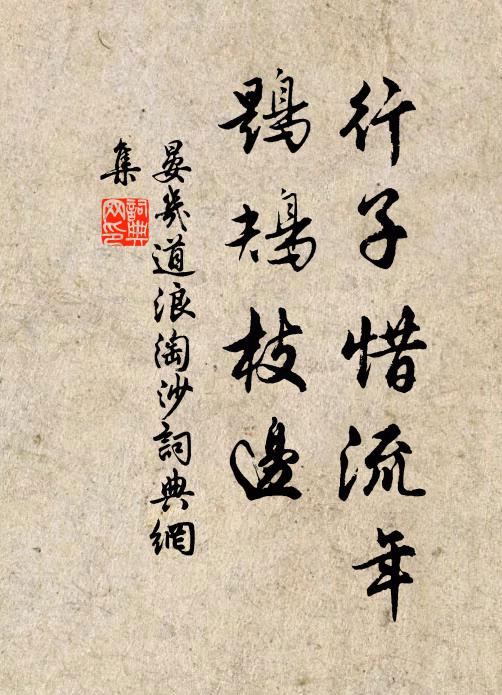 行子惜流年
鶗鴂枝邊
晏幾道浪淘沙詞典網
集
詞典網印